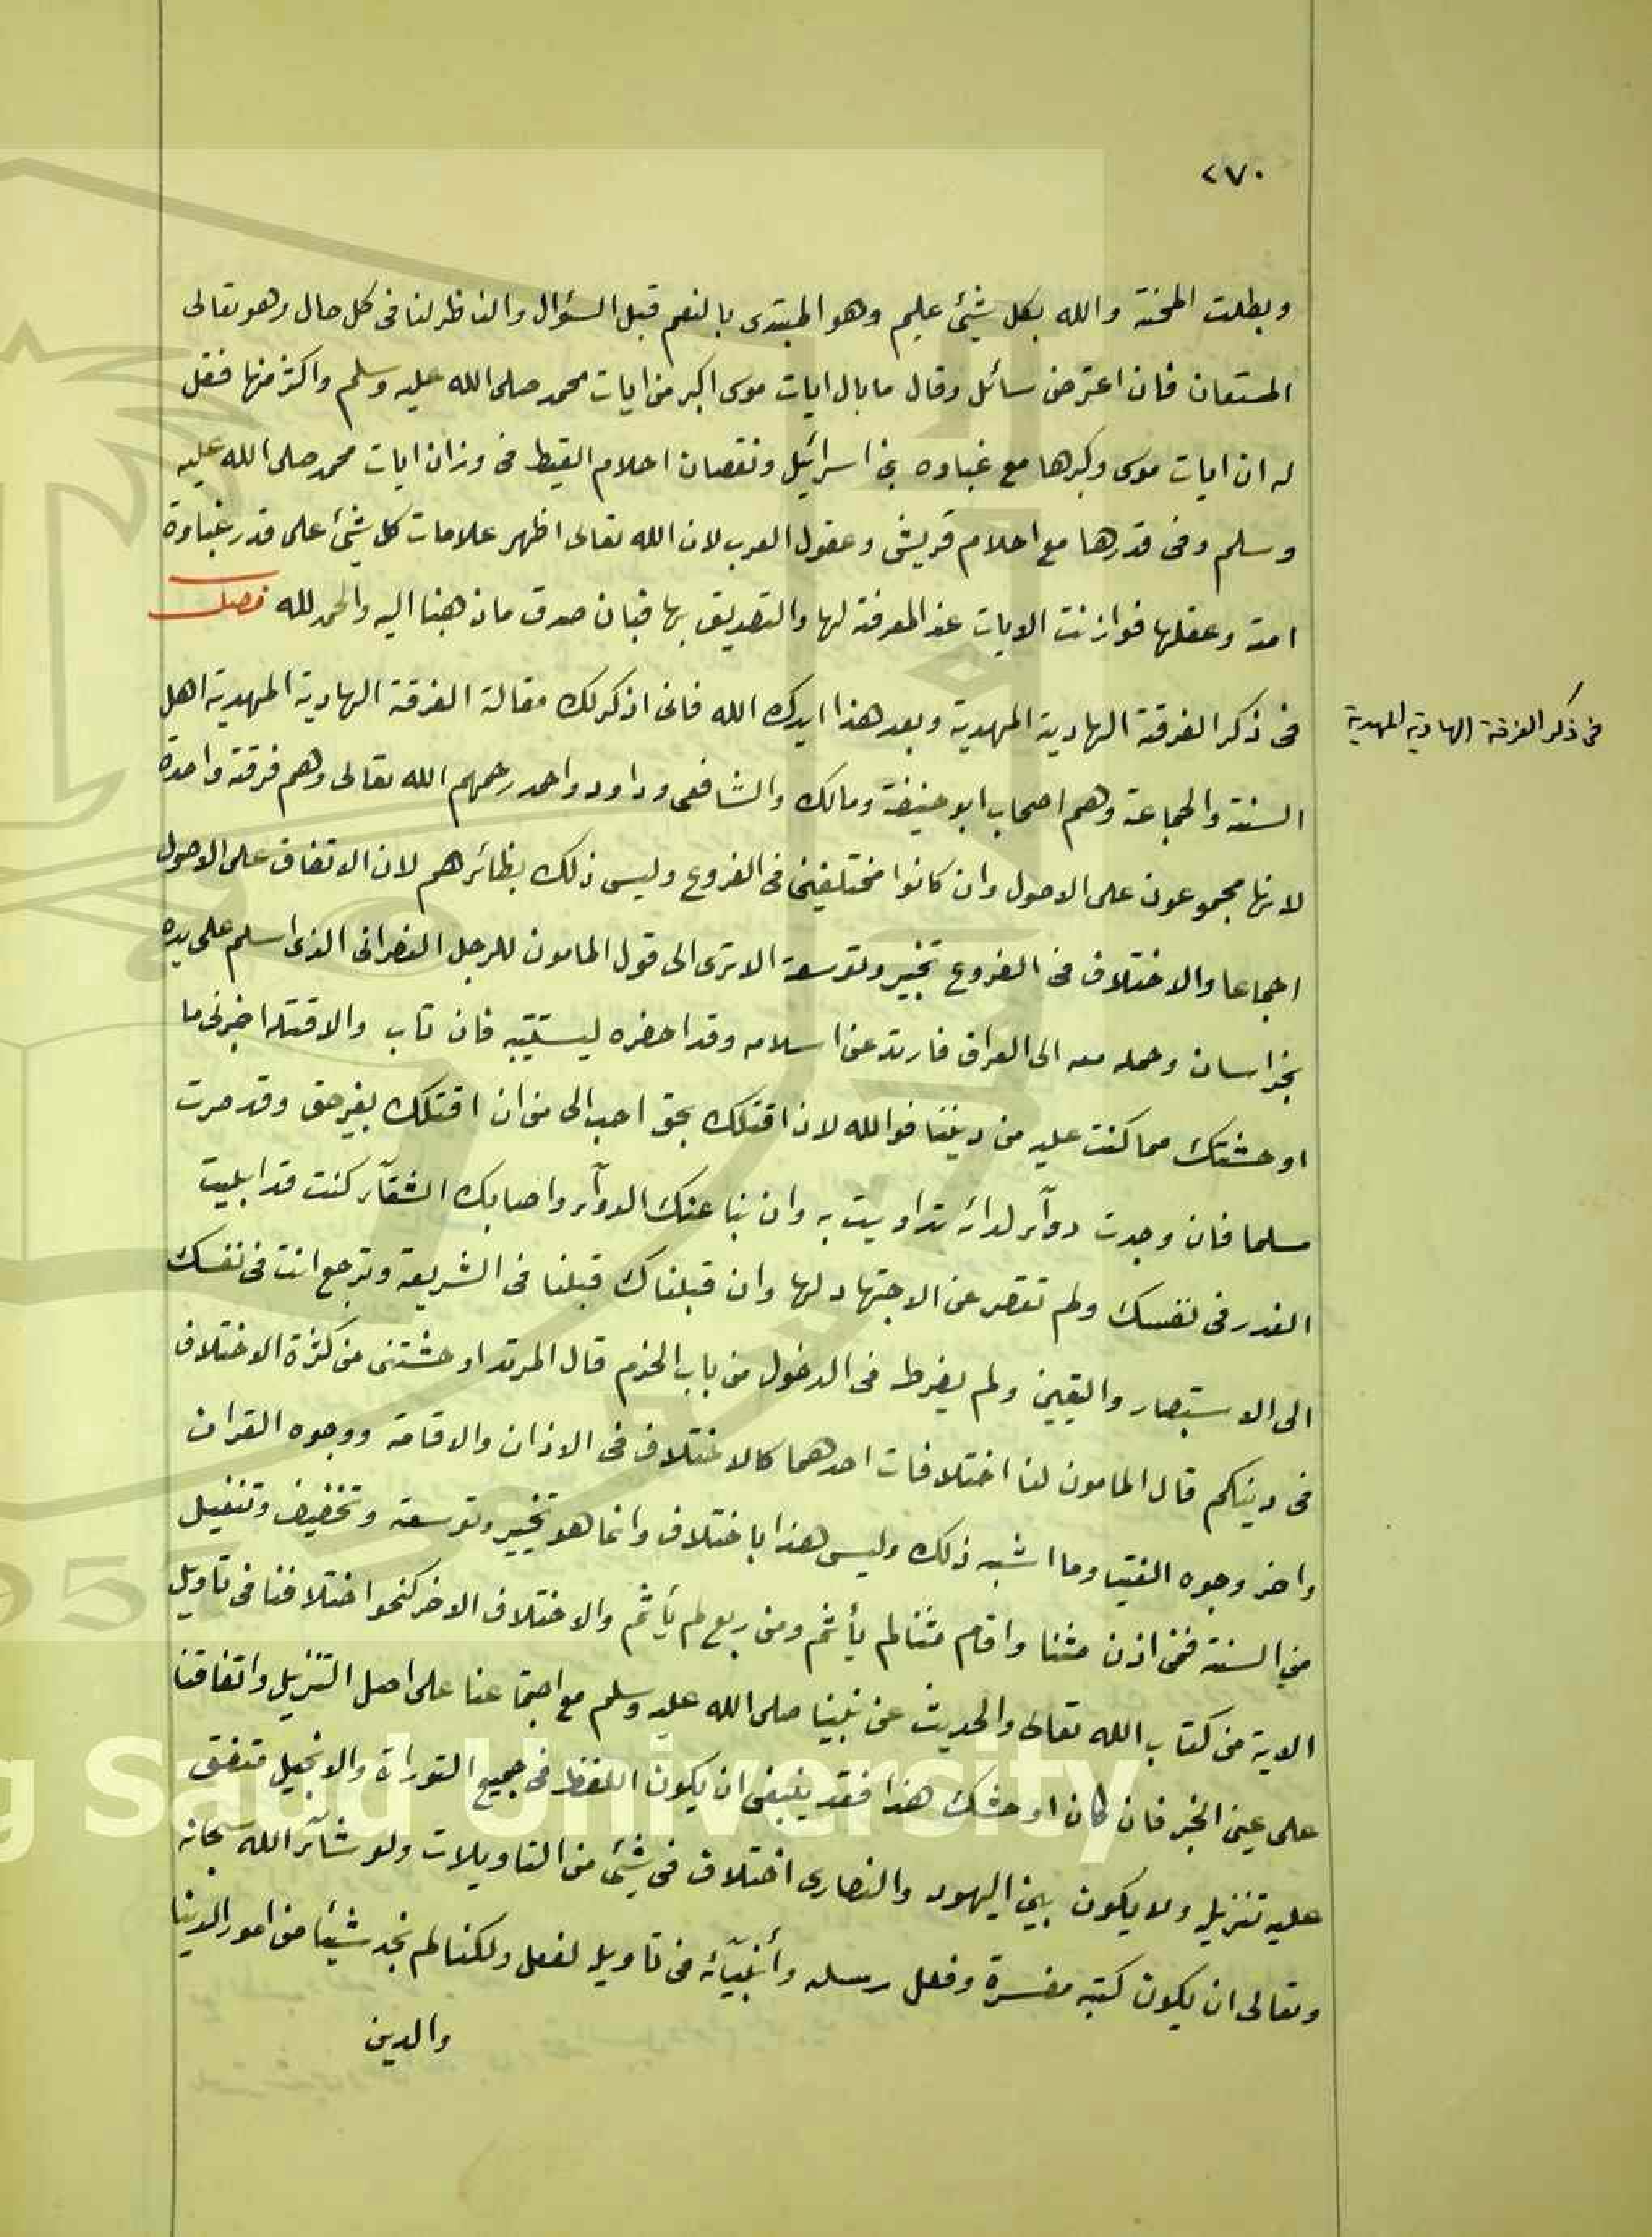 ٢٧٠
وبطلت المحنة والله بكل شيئ عليم وهو المبتدى بالنعم قبل السؤال والناظر لنا فى كل حال وهو تعالى
المستعان فان اعترض سائل وقال ما بال ايات موسى اكبر من ايات محمد صلى الله عليه وسلم واكثر منها فقل
له ان ايات موسى وكبرها مع غباوه بنى اسرائيل ونقصان احلام القبط فى وزان ايات محمد صلى الله عليه
وسلم وفى قدرها مع احلام قريش وعقول العرب لان الله تعالى اظهر علامات كل شيئ على قدر غباوة
امته وعقلها فوازنت الايات عند المعرفة لها والتصديق بها فبان صدق ما ذهبنا اليه والحمد لله فصل
فى ذكر الفرقة الهادية المهدية وبعد هذا ايدك الله فانى اذكر لك مقالة الفرقة الهادية المهدية اهل
فى ذكر الفرقة الهادية المهدية
السنة والجماعة وهم اصحاب ابو حنيفة ومالك والشافعى وداود واحمد رحمهم الله تعالى وهم فرقة واحدة
لانها مجموعون على الاصول وان كانوا مختلفين فى الفروع وليس ذلك بظائرهم لان الاتفاق على الاصول
اجماعا والاختلاف فى الفروع تخيير وتوسعة الا ترى الى قول المامون للرجل النصرانى الذى اسلم على يده
بخراسان وحمله معه الى العراق فارتد عن اسلامه وقد احضره ليستتيبه فان تاب والا قتله اخبرنى ما
اوحشتك مما كنت عليه من ديننا فوالله لان اقتلك بحق احب الى من ان اقتلك بغير حق وقد صرت
مسلما فان وجدت دوآئر لدائه تداويت به وان نبا عنك الدوآئر واصابك الشقآئر كنت قد ابليت
العذر فى نفسك ولم تقصر عن الاجتهاد لها وان قبلناك قبلنا فى الشريعة وترجع انت فى نفسك
الى الاستبصار واليقين ولم يفرط فى الدخول من باب الحزم قال المرتد اوحشتنى من كثرة الاختلاف
فى دينكم قال المامون لنا اختلافات احدهما كالاختلاف فى الاذان والاقامة ووجوه القران
واخر وجوه الفتيا وما اشبه ذلك وليس هذا باختلاف وانما هو تخيير وتوسعة وتخفيف وتنفيل
من السنة فمن اذن مثنا واقام مثنا لم يأثم ومن ربع لم يأثم والاختلاف الاخر كنحو اختلافنا فى تاويل
الاية من كتاب الله تعالى والحديث عن نبينا صلى الله عليه وسلم مع اجتماعنا على اصل التنزيل واتفاقنا
على عين الخبر فان كان اوحشك هذا فقد ينبغى ان يكون اللفظ فى جميع التوراة والانجيل متفق
عليه تنزيله ولا يكون بين اليهود والنصارى اختلاف فى شيئ من التاويلات ولو شآئر الله سبحانه
وتعالى ان يكون كتبه مفسرة وفعل رسله وأنبيآئه من تاويله لفعل ولكنا لم نجد شيئا من امور الدينا
والدين
King Saud University